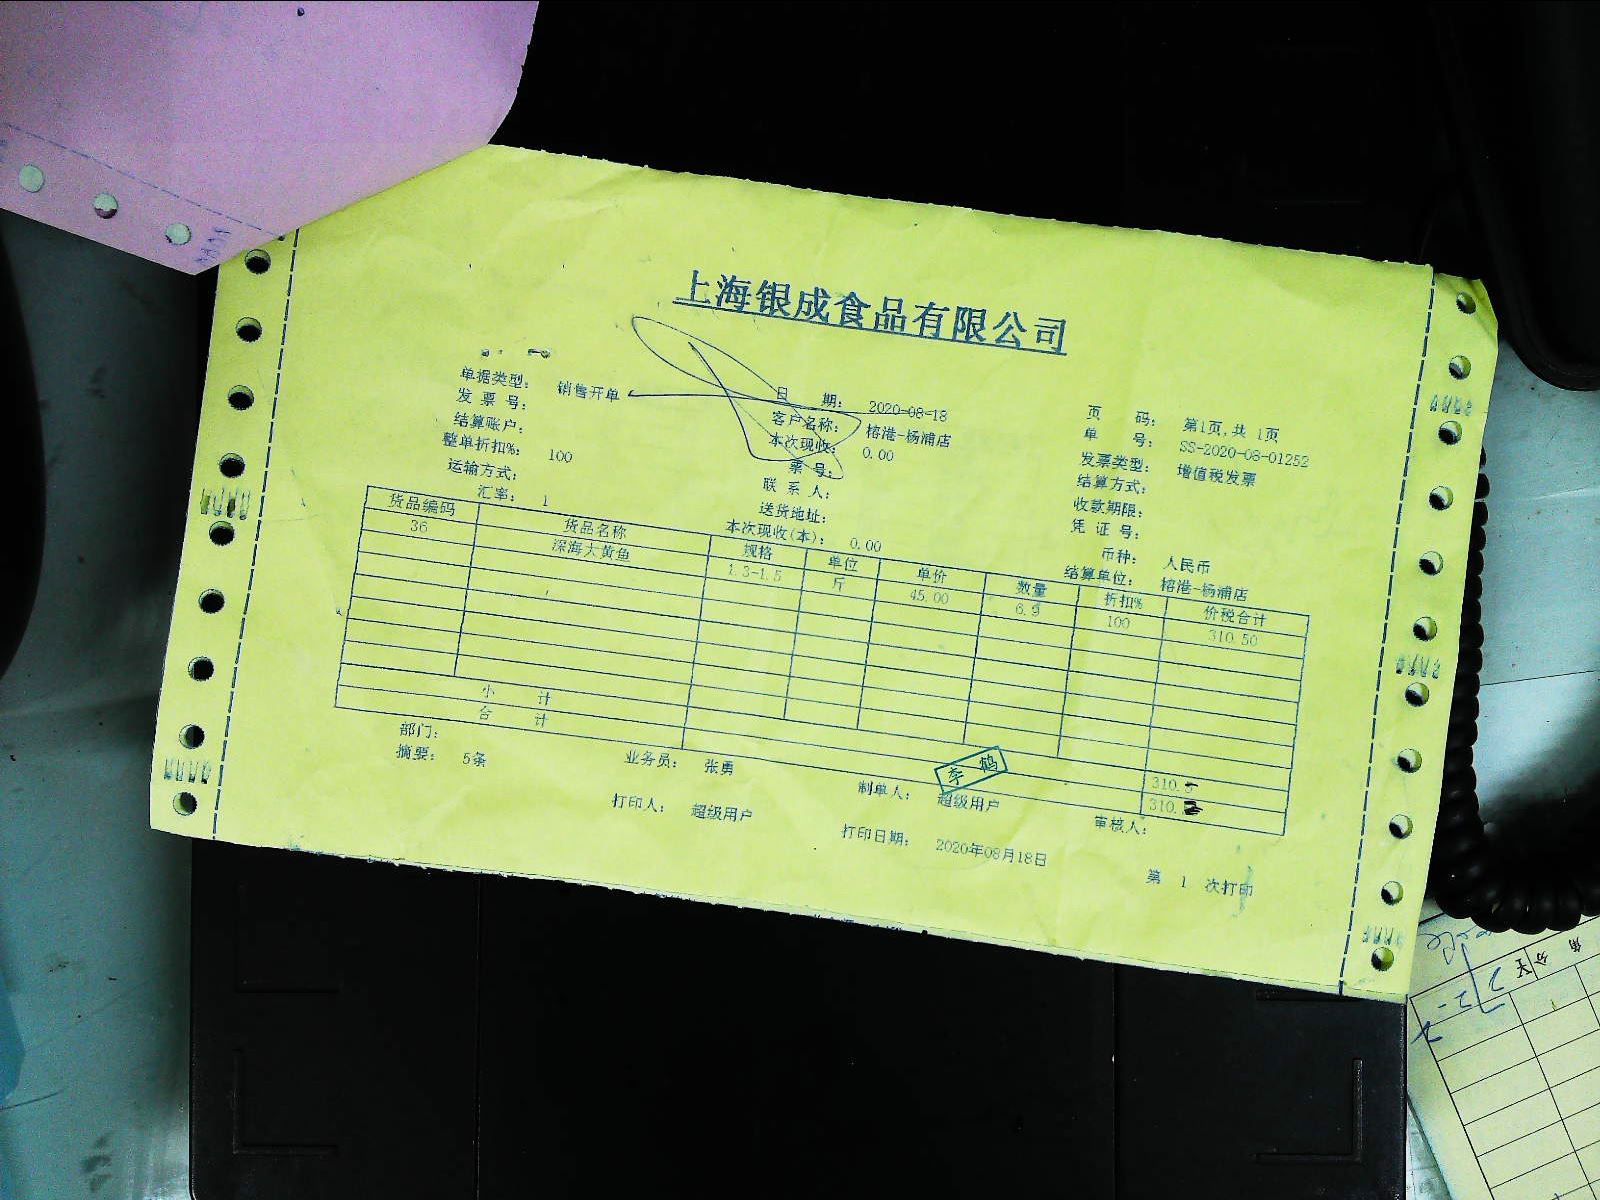 上海银成食品有限公司
单据类型： 销售开单 日 期： 2020-08-18 页 码： 第1页,共 1页
发 票 号： 客户名称： 榕港-杨浦店 单 号： SS-2020-08-01252
结算账户： 本次现收： 0.00 发票类型： 增值税发票
整单折扣%： 100 票 号： 结算方式：
运输方式： 联 系 人： 收款期限：
汇率： 1 送货地址： 凭 证 号：
本次现收(本)： 0.00 币种： 人民币
结算单位： 榕港-杨浦店
货品编码 货品名称 规格 单位 单价 数量 折扣% 价税合计
36 深海大黄鱼 1.3-1.5 斤 45.00 6.9 100 310.50
小 计 310.
合 计 310.
部门：
摘要： 5条 业务员： 张勇 制单人： 超级用户 审核人：
李 鹤
打印人： 超级用户 打印日期： 2020年08月18日 第 1 次打印
角
分